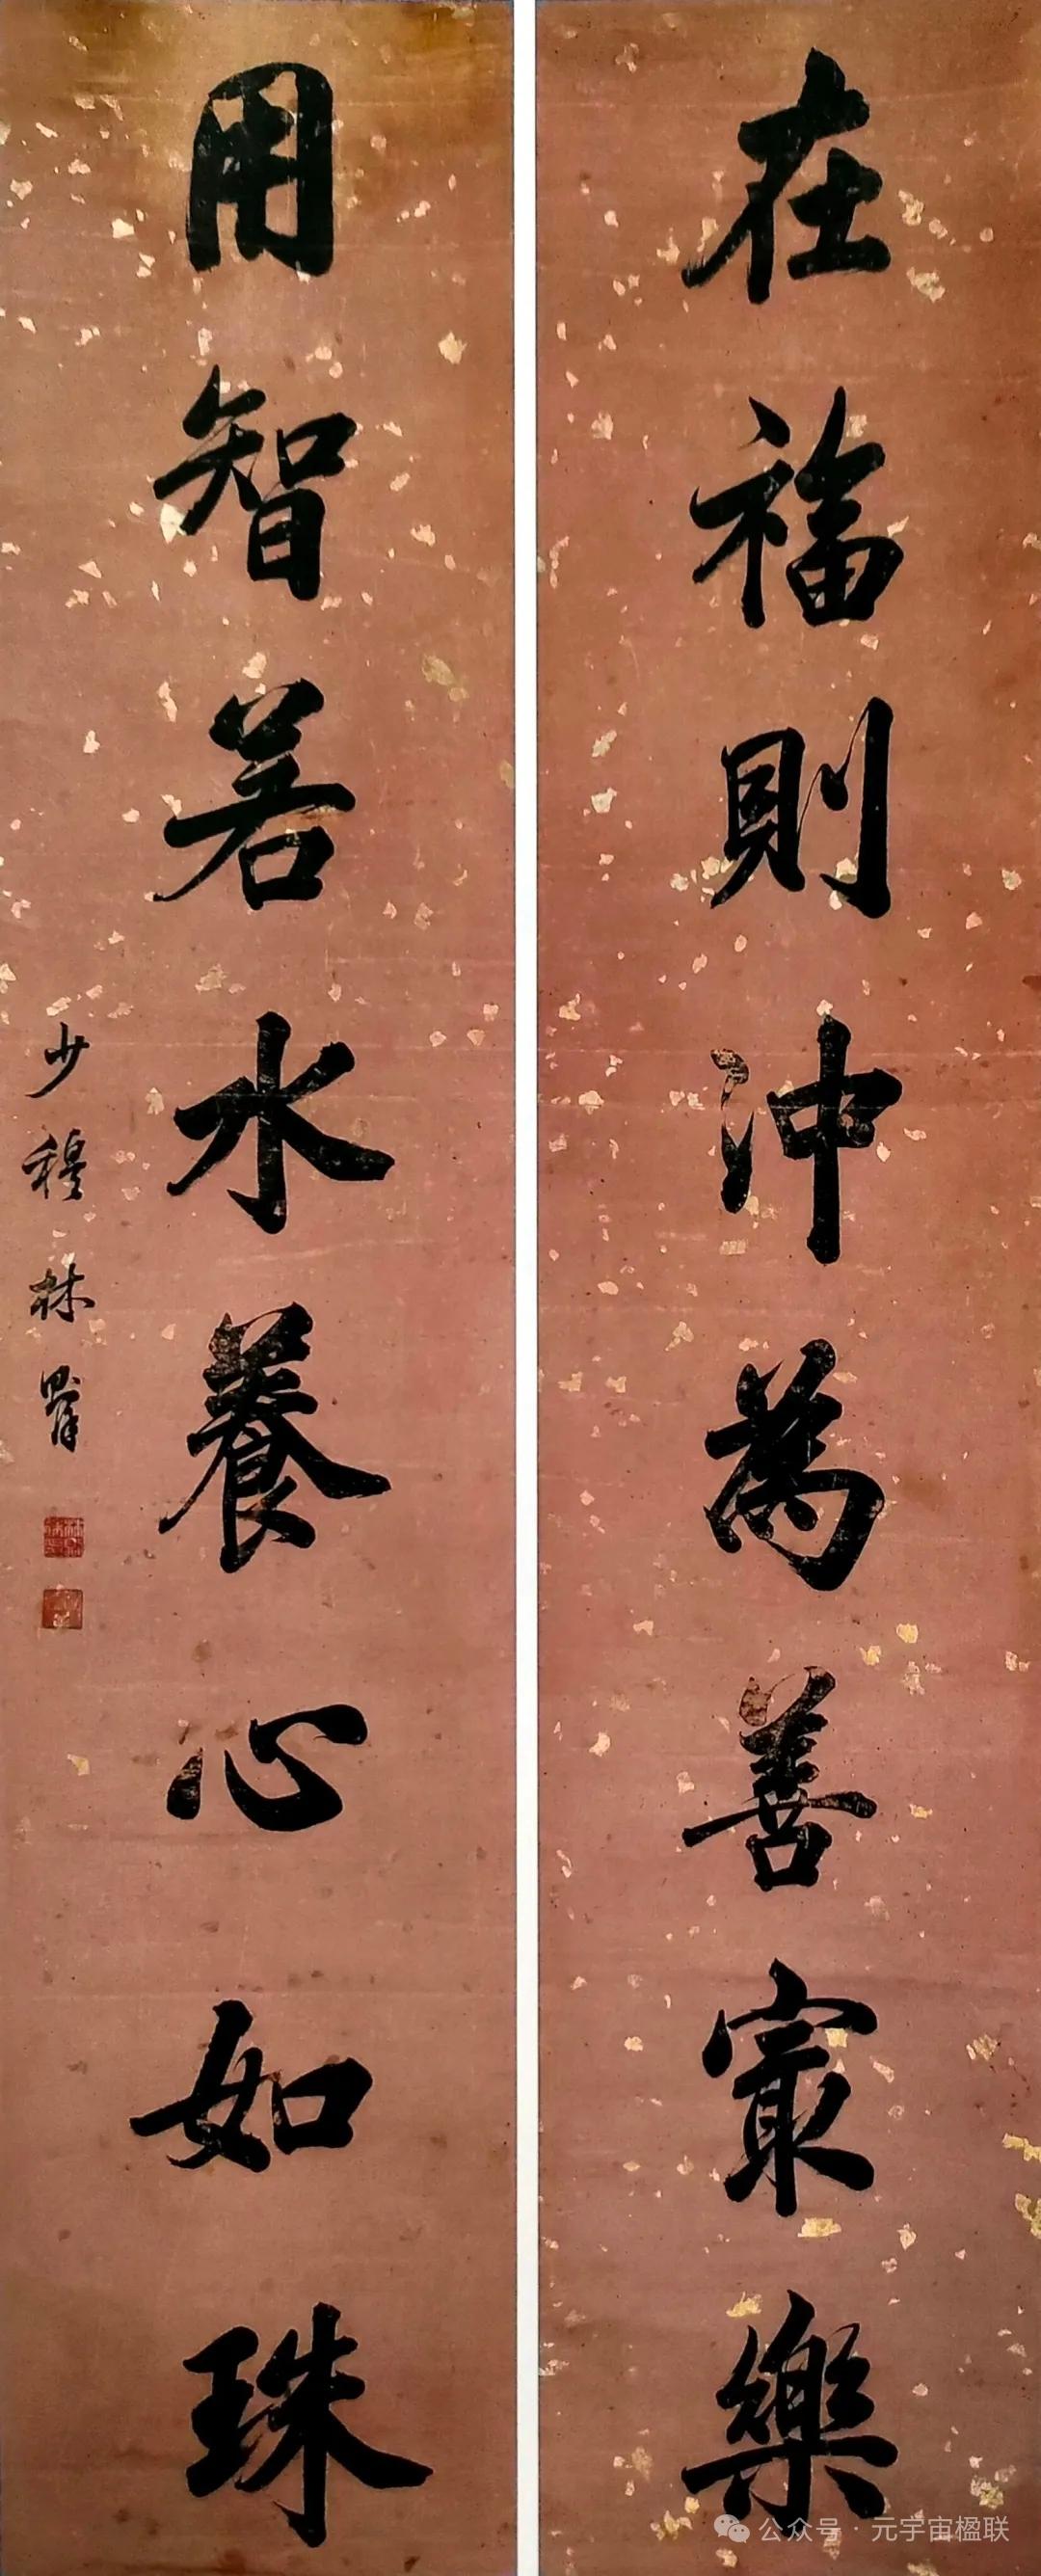 在福則沖為善寂樂
用智若水養心如珠
少穆林
公众号·元宇宙楹联